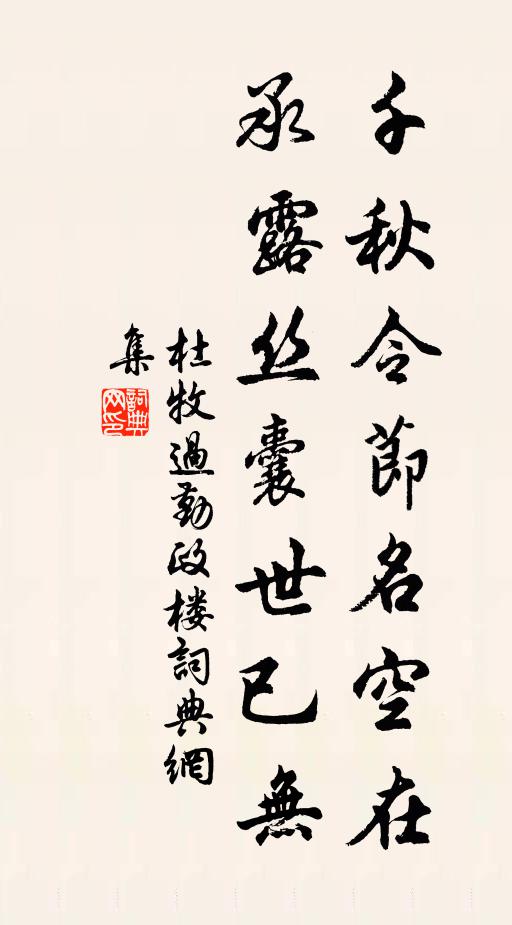 千秋令節名空在
承露丝囊世已無
杜牧過勤政楼詞典網
集
詞典網印